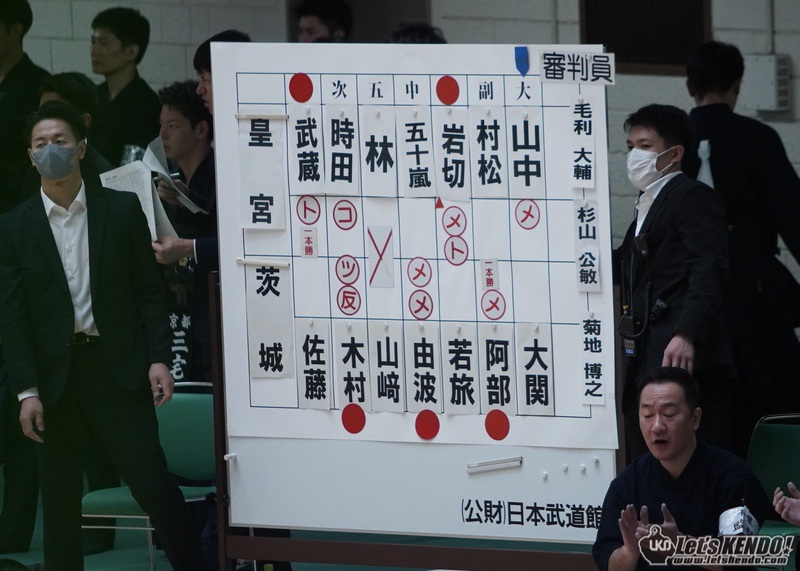 審判員
次 五 中 副 大
皇宮
武蔵 時田 林 五十嵐 岩切 村松 山中
毛利 大輔
杉山 公敏
菊地 博之
ト コ メ メ
一本勝 ト
ツ メ 一本勝
反 メ メ
茨城
佐藤 木村 山﨑 由波 若旅 阿部 大関
(公財)日本武道館
京都
三宅
LKO LET'S KENDO!
www.letskendo.com